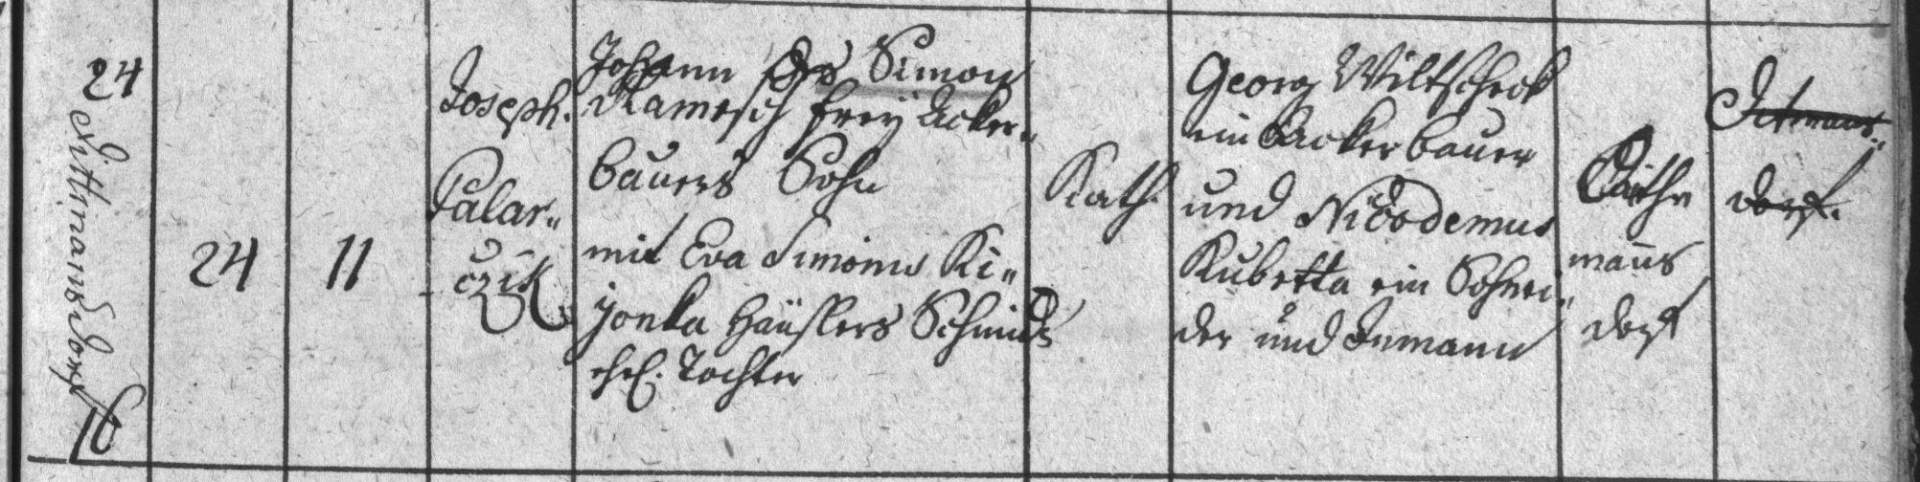 24
Dittmansdorf
16
24
11
Joseph.
Palar„
czik
Johann des Simon
Kamesch frey Acker„
bauers Sohn
mit Eva Simonis Ki„
jonka Häuslers Schmids
ehel. Tochter
Kath.
Georg Wiltschek
ein Ackerbauer
und Nicodemus
Kubetta ein Schnei„
der und Inmann
manns
dorf
dorf.